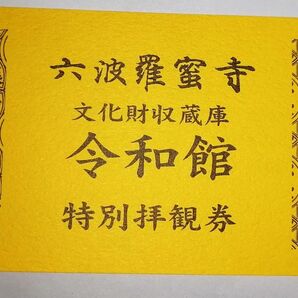 六波羅蜜寺
文化財収蔵庫
令和館
特別拝観券